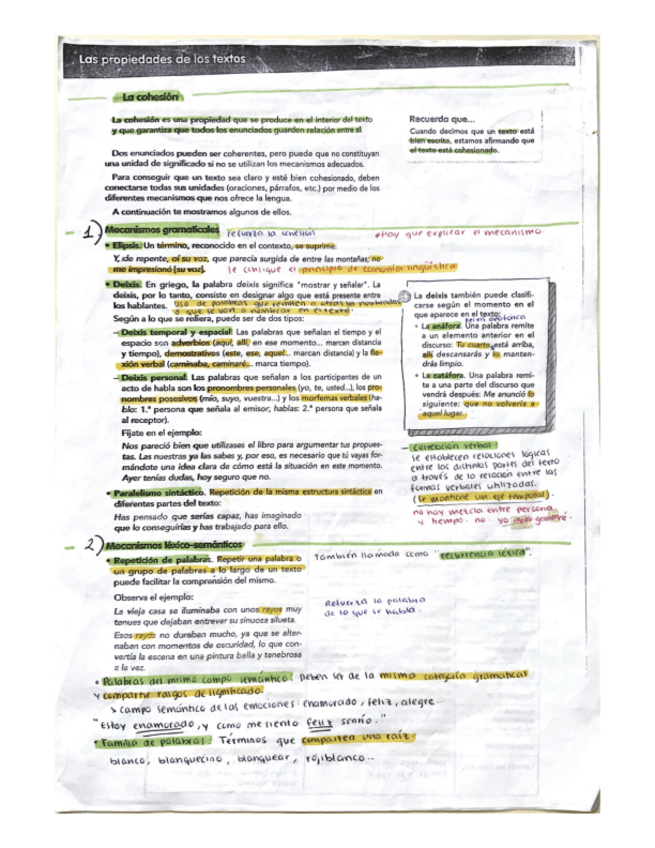 Las propiedades de los textos
La cohesión
La cohesión es una propiedad que se produce en el interior del texto
y que garantiza que todos los enunciados guarden relación entre sí.
Recuerda que...
Cuando decimos que un texto está
bien escrito, estamos afirmando que
el texto está cohesionado.
Dos enunciados pueden ser coherentes, pero puede que no constituyan
una unidad de significado si no se utilizan los mecanismos adecuados.
Para conseguir que un texto sea claro y esté bien cohesionado, deben
conectarse todas sus unidades (oraciones, párrafos, etc.) por medio de los
diferentes mecanismos que nos ofrece la lengua.
A continuación te mostramos algunos de ellos.
1) Mecanismos gramaticales refuerza la cohesión
*Hay que explicar el mecanismo.
• Elipsis. Un término, reconocido en el contexto, se suprime:
Y, de repente, oí su voz, que parecía surgida de entre las montañas; no
me impresionó [su voz]. se consigue el principio de economía lingüística
• Deixis. En griego, la palabra deixis significa "mostrar y señalar". La
deixis, por lo tanto, consiste en designar algo que está presente entre
los hablantes. Uso de palabras que remiten a otras ya nombradas
o que se van a nombrar en el texto.
Según a lo que se refiera, puede ser de dos tipos:
– Deixis temporal y espacial: Las palabras que señalan el tiempo y el
espacio son adverbios (aquí, allí, en ese momento... marcan distancia
y tiempo), demostrativos (este, ese, aquel... marcan distancia) y la fle-
xión verbal (caminaba, caminaré... marca tiempo).
– Deixis personal. Las palabras que señalan a los participantes de un
acto de habla son los pronombres personales (yo, te, usted...), los pro-
nombres posesivos (mío, suyo, vuestra...) y los morfemas verbales (ha-
blo: 1.ª persona que señala al emisor; hablas: 2.ª persona que señala
al receptor).
Fíjate en el ejemplo:
Nos pareció bien que utilizases el libro para argumentar tus propues-
tas. Las nuestras ya las sabes y, por eso, es necesario que tú vayas for-
mándote una idea clara de cómo está la situación en este momento.
Ayer tenías dudas, hoy seguro que no.
• Paralelismo sintáctico. Repetición de la misma estructura sintáctica en
diferentes partes del texto:
Has pensado que serías capaz, has imaginado
que lo conseguirías y has trabajado para ello.
La deixis también puede clasifi-
carse según el momento en el
que aparece en el texto:
• La anáfora. Una palabra remite
a un elemento anterior en el
discurso: Tu cuarto está arriba,
allí descansarás y lo manten-
drás limpio.
• La catáfora. Una palabra remi-
te a una parte del discurso que
vendrá después: Me anunció lo
siguiente: que no volvería a
aquel lugar.
– Correlación verbal:
Se establecen relaciones lógicas
entre las distintas partes del texto
a través de la relación entre las
formas verbales utilizadas.
(Se mantiene un eje temporal).
no hay mezcla entre persona
y tiempo: no: yo ayer ganaré.
2) Mecanismos léxico-semánticos
• Repetición de palabras. Repetir una palabra o
un grupo de palabras a lo largo de un texto
puede facilitar la comprensión del mismo.
También llamada como "recurrencia léxica".
Observa el ejemplo:
La vieja casa se iluminaba con unos rayos muy
tenues que dejaban entrever su sinuosa silueta.
Esos rayos no duraban mucho, ya que se alter-
naban con momentos de oscuridad, lo que con-
vertía la escena en una pintura bella y tenebrosa
a la vez.
Refuerza la palabra
de lo que se habla.
• Palabras del mismo campo semántico: Deben ser de la misma categoría gramatical
y compartir rasgos de significado.
> campo semántico de las emociones: enamorado, feliz, alegre...
"Estoy enamorado, y como me siento feliz sonrío."
• Familia de palabras: Términos que comparten una raíz:
blanco, blanquecino, blanquear, rojiblanco...